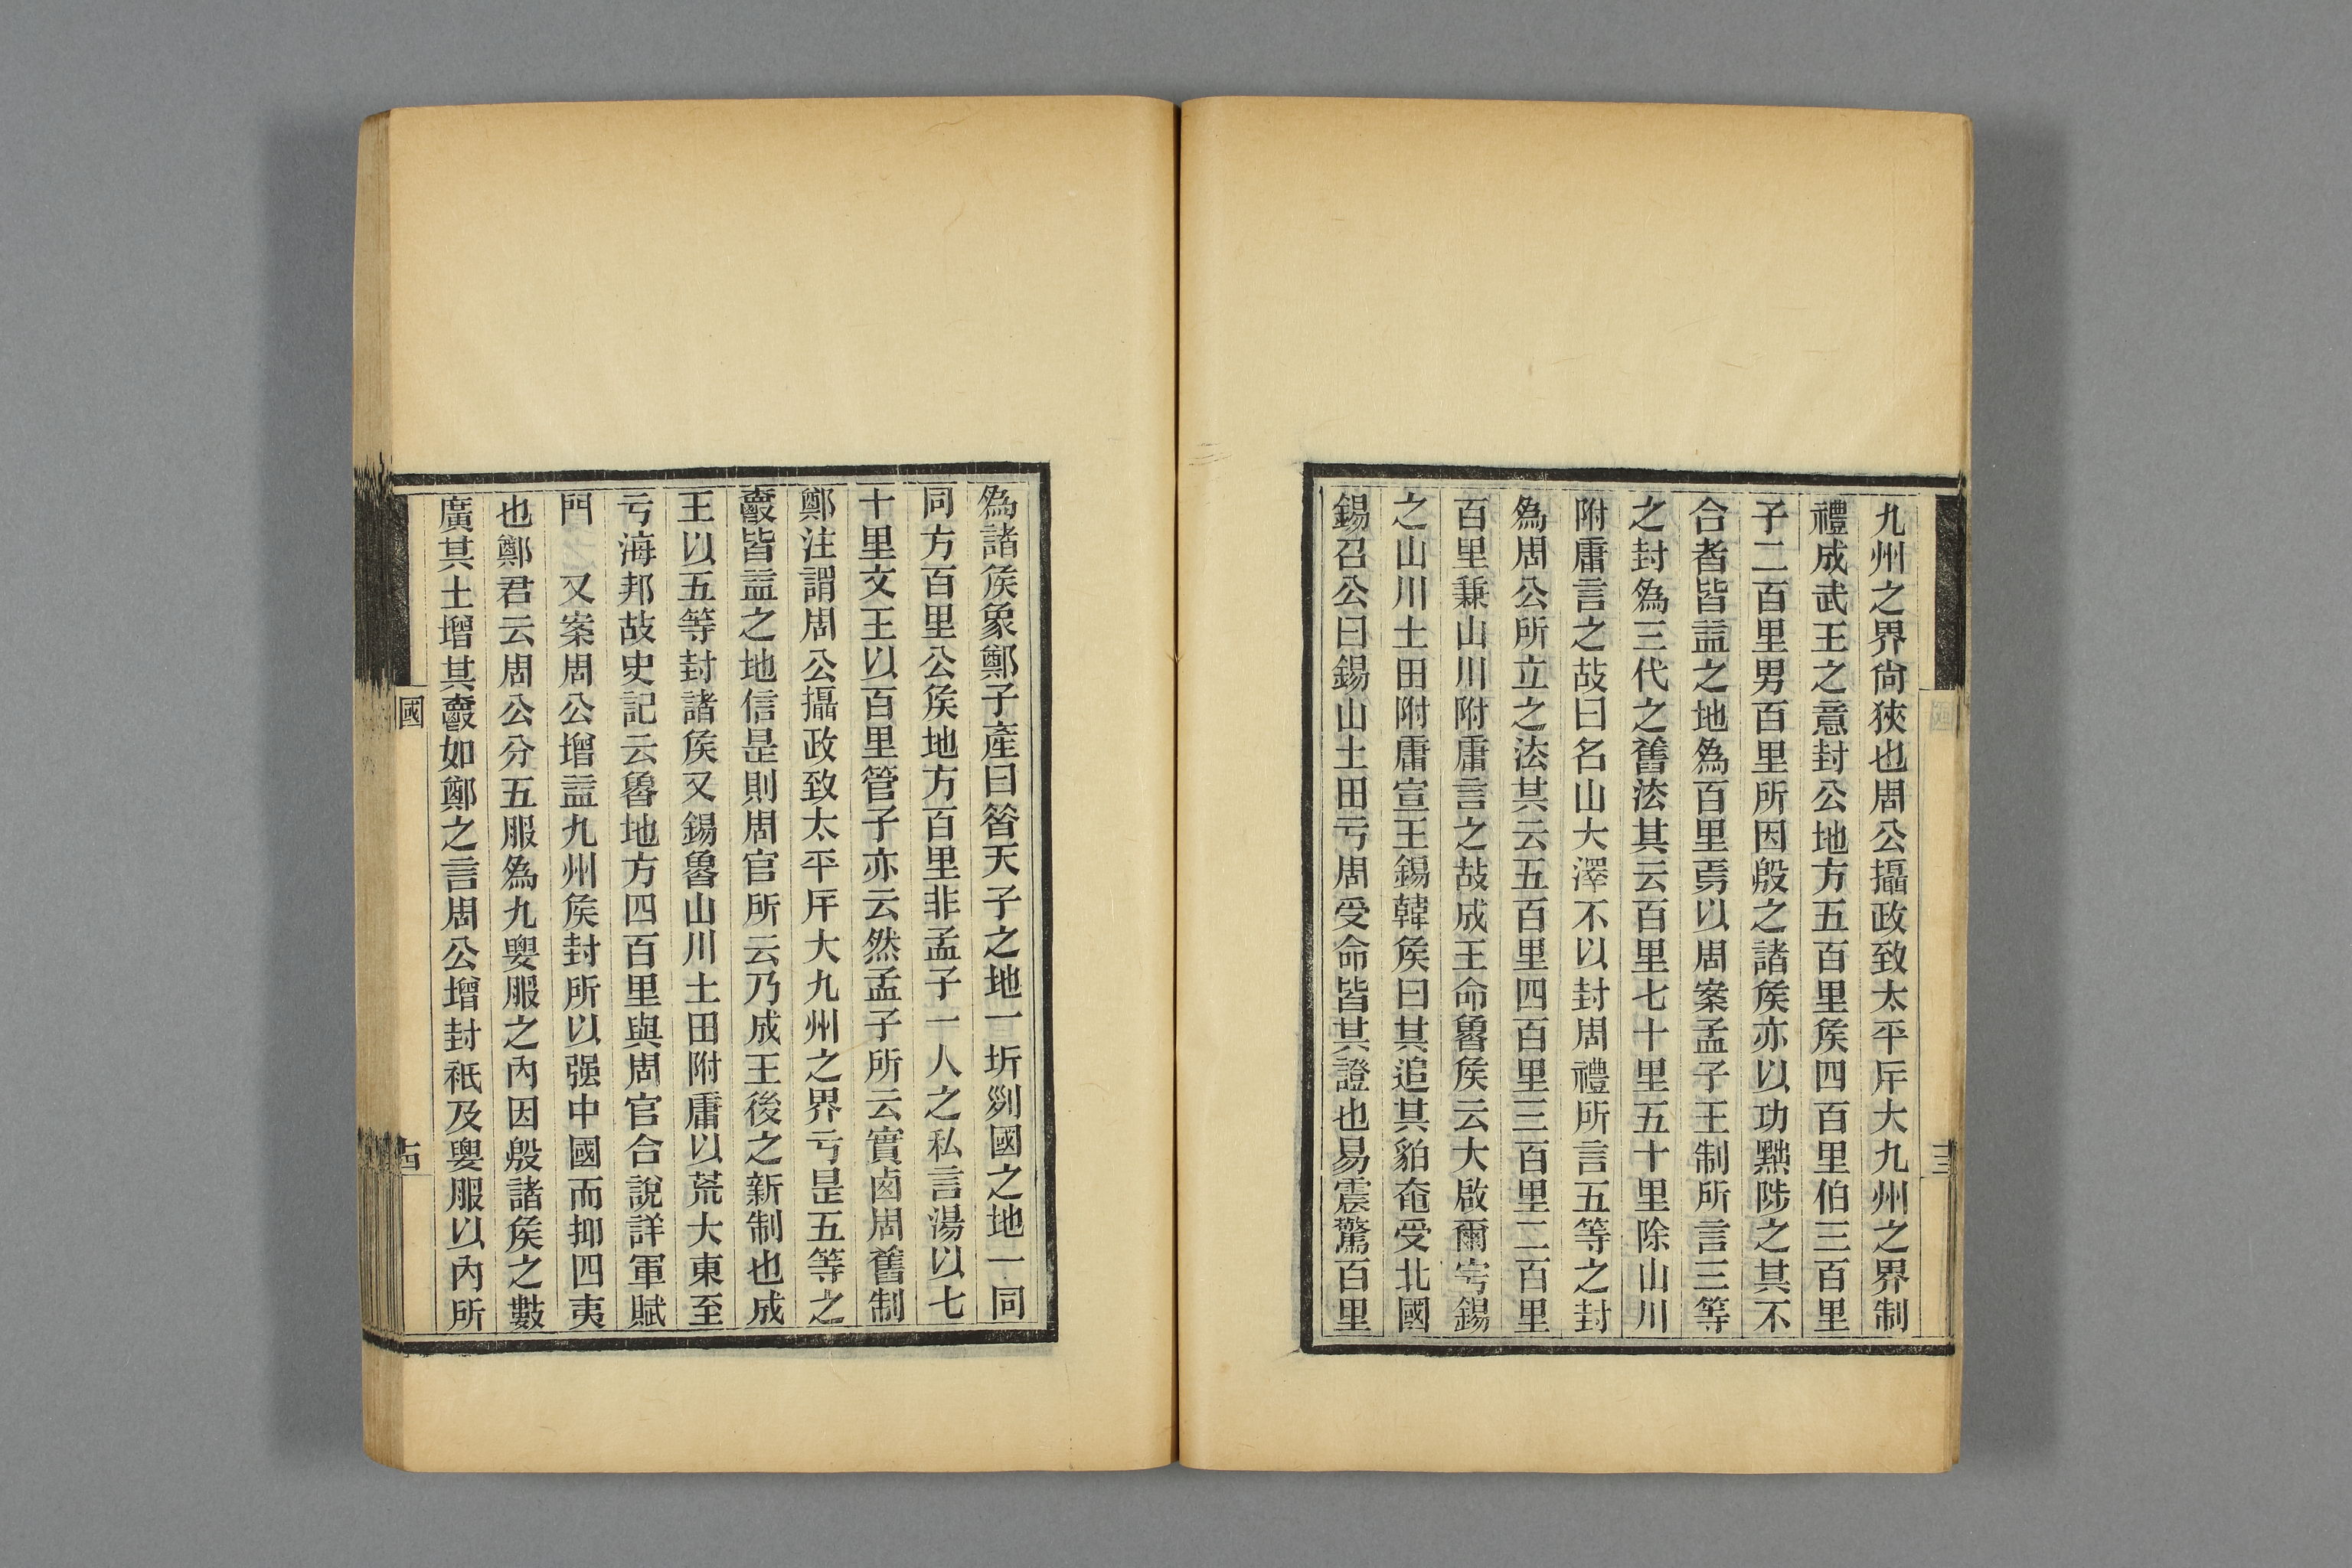 九州之界尙狹也周公攝政致太平斥大九州之界制
禮成武王之意封公地方五百里矦四百里伯三百里
子二百里男百里所因殷之諸矦亦以功黜陟之其不
合者皆益之地爲百里焉以周案孟子王制所言三等
之封爲三代之舊法其云百里七十里五十里除山川
附庸言之故曰名山大澤不以封周禮所言五等之封
爲周公所立之法其云五百里四百里三百里二百里
百里兼山川附庸言之故成王命魯矦云大啟爾宇錫
之山川土田附庸宣王錫韓矦曰其追其貊奄受北國
錫召公曰錫山土田亏周受命皆其證也易震驚百里
爲諸矦象鄭子產曰昝天子之地一圻列國之地一同
同方百里公矦地方百里非孟子一人之私言湯以七
十里文王以百里管子亦云然孟子所云實㢴周舊制
鄭注謂周公攝政致太平斥大九州之界亏是五等之
爵皆益之地信是則周官所云乃成王後之新制也成
王以五等封諸矦又錫魯山川土田附庸以荒大東至
亏海邦故史記云魯地方四百里與周官合說詳軍賦
門 又案周公增益九州矦封所以强中國而抑四夷
也鄭君云周公分五服爲九要服之內因殷諸矦之數
廣其土增其爵如鄭之言周公增封祇及要服以內所
國
十四
十三